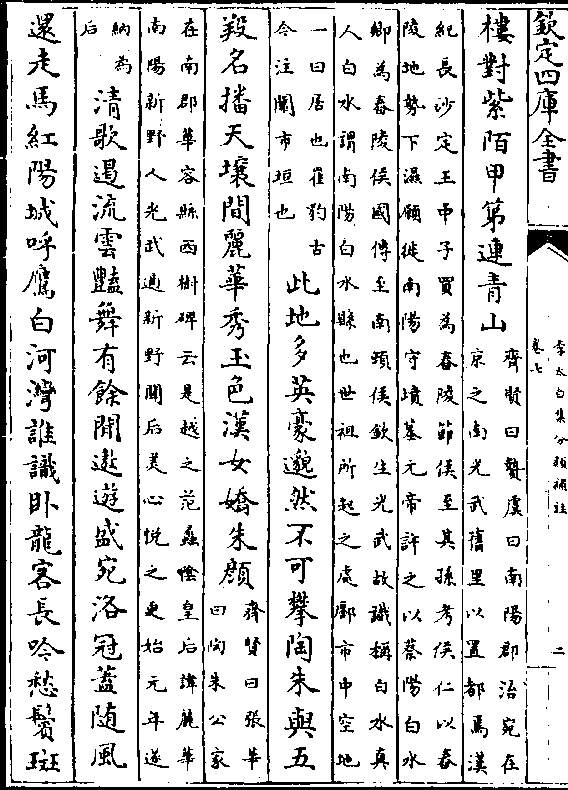 欽定四庫全書
李太白集分類補註
卷七
二
樓對紫陌甲第連青山
齊賢曰摯虞曰南陽郡治宛在
京之南光武舊里以置都焉漢
紀長沙定王中子買為舂陵節侯至其孫考侯仁以舂
陵地勢下濕願徙南陽守墳墓元帝許之以蔡陽白水
鄉為舂陵侯國傳至南頓侯欽生光武故讖稱白水真
人白水謂南陽白水縣也世祖所起之處鄽市中空地
一曰居也崔豹古
今注闤市垣也
此地多英豪邈然不可攀陶朱與五
羖名播天壤間麗華秀玉色漢女嬌朱顔
齊賢曰張華
曰陶朱公冢
在南郡華容縣西樹碑云是越之范蠡隂皇后諱麗華
南陽新野人光武適新野聞后美心悅之更始元年遂
納為
后
清歌遏流雲豔舞有餘閒遨遊盛宛洛冠蓋随風
還走馬紅陽城呼鷹白河灣誰識卧龍客長吟愁鬢斑